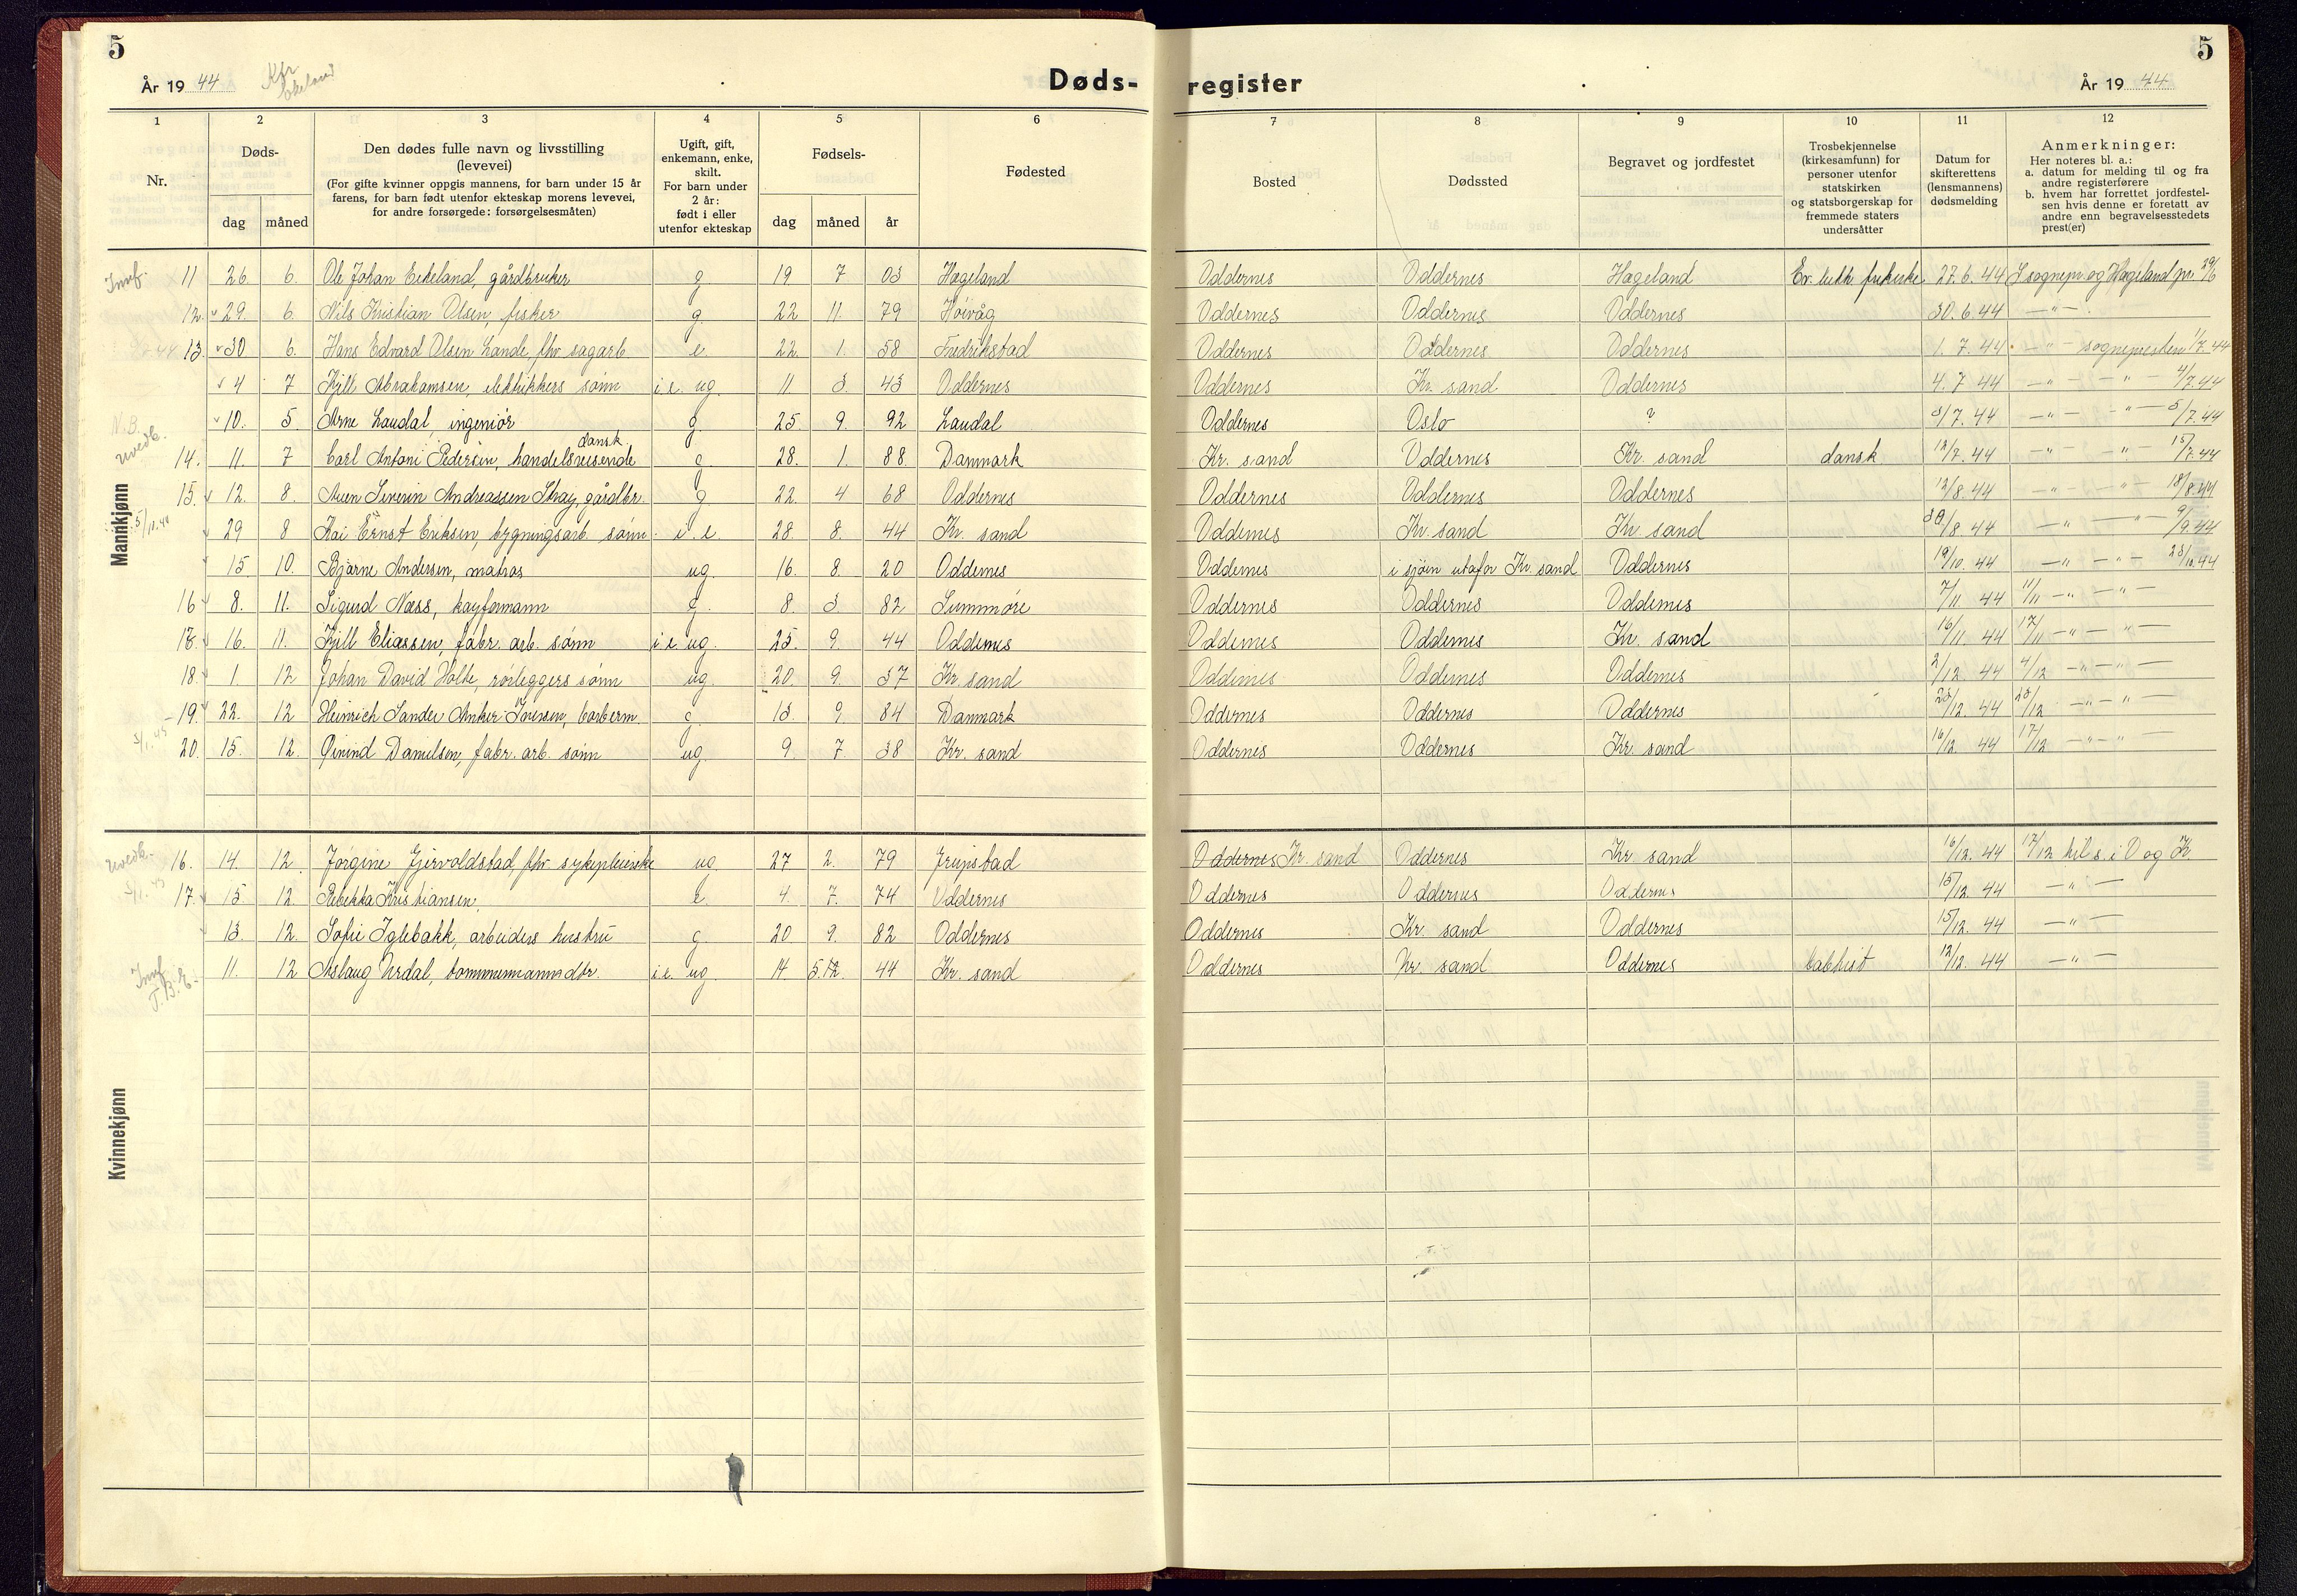 5
År 19 44
Døds-
1 2 3 4 5 6
Nr.
Døds-
dag måned
Den dødes fulle navn og livsstilling
(levevei)
(For gifte kvinner oppgis mannens, for barn under 15 år
farens, for barn født utenfor ekteskap morens levevei,
for andre forsørgede: forsørgelsesmåten)
Ugift, gift,
enkemann, enke,
skilt.
For barn under
2 år:
født i eller
utenfor ekteskap
Fødsels-
dag måned år
Fødested
Mannkjønn
11 26 6. Ole Johan Eikeland, gårdbruker g. 19 7 03 Hægeland
12. 29. 6. Nils Kristian Olsen, fisker g. 22 11. 79 Høivåg
13. 30 6. Hans Edvard Olsen Lande, fhv sagarb. e. 22. 1. 58 Fredrikstad
4 7 Kjell Abrahamsen, elektrikkers sønn i.e. ug. 11. 3. 43 Oddernes
10. 5. Arne Laudal, ingeniør g. 25. 9. 92 Laudal
dansk.
14. 11. 7 Carl Antoni Pedersen, handelsreisende g 28. 1. 88. Danmark
15. 12. 8. Severin Andreassen Stray, gårdbr. g 22. 4 68 Oddernes
29 8 Kai Ernst Eriksen, bygningsarb. sønn i.e. 28. 8. 44 Kr. sand
15. 10. Bjarne Andersen, matros ug. 16. 8. 20 Oddernes
16 8. 11. Sigurd Næss, kayformann g. 8. 3 82 Sunnmøre
16. 11. Kjell Eliassen, fabr. arb. sønn i.e. ug. 25. 9. 44 Oddernes
18. 1. 12 Johan David Holte, rørleggers sønn ug. 20 9. 37 Kr. sand
19. 22. 12 Heinrich Sander Anker Iversen, barberm. g. 13. 9. 84 Danmark
20. 15. 12. Øivind Danielsen, fabr. arb. sønn ug. 9. 7. 38 Kr. sand
Kvinnekjønn
16. 14. 12. Jørgine Gjervoldstad, fhv sykepleierske ug. 27 2. 79
17. 15 12. Rebekka Kristiansen, e. 4. 7. 74 Oddernes
13. 12. Sofie Iglebakk, arbeiders hustru g. 20 9. 82 Oddernes
11. 12 Aslaug Urdal, tømmermanns dtr. i.e. ug. 14 5.12. 44 Kr. sand
5
register
År 19 44
7 8 9 10 11 12
Bosted
Dødssted
Begravet og jordfestet
Trosbekjennelse
(kirkesamfunn) for
personer utenfor
statskirken
og statsborgerskap for
fremmede staters
undersåtter
Datum for
skifterettens
(lensmannens)
dødsmelding
Anmerkninger:
Her noteres bl. a.:
a. datum for melding til og fra
andre registerførere
b. hvem har forrettet jordfestel-
sen hvis denne er foretatt av
andre enn begravelsesstedets
prest(er)
Oddernes Oddernes Hægeland Ev. luth. frikirke 27.6.44 sognepr. og Hægeland pr. 29/6
Oddernes Oddernes Oddernes 30.6.44 —"—
Oddernes Oddernes Oddernes 1.7.44 —"— sognepresten 1/7.44
Oddernes Kr. sand Oddernes 4.7.44 —"— —"— 4/7.44
Oddernes Oslo ? 3/7.44 —"— —"— 5/7.44
Kr. sand Oddernes Kr. sand dansk 12/7.44 —"— —"— 15/7.44
Oddernes Oddernes Oddernes 12/8.44 —"— —"— 18/8.44
Oddernes Kr. sand Kr. sand 30/8.44 —"— —"— 9/9.44
Oddernes i sjøen utafor Kr. sand Oddernes 19/10.44 —"— —"— 23/10.44
Oddernes Oddernes Oddernes 7/11 44 11/11 —"— —"—
Oddernes Oddernes Kr. sand 16/11.44 17/11 —"— —"—
Oddernes Oddernes Oddernes 2/12.44 4/12 —"— —"—
Oddernes Oddernes Oddernes 23/12.44 23/12 —"— —"—
Oddernes Oddernes Kr. sand 16/12 44 17/12 —"— —"—
Oddernes Kr. sand Oddernes Kr. sand 16/12.44 17/12 til s. i O og Kr.
Oddernes Oddernes Oddernes 15/12.44 —"—
Oddernes Kr. sand Oddernes 15/12.44 —"—
Oddernes Kr. sand Oddernes babtist 12/12.44 —"—